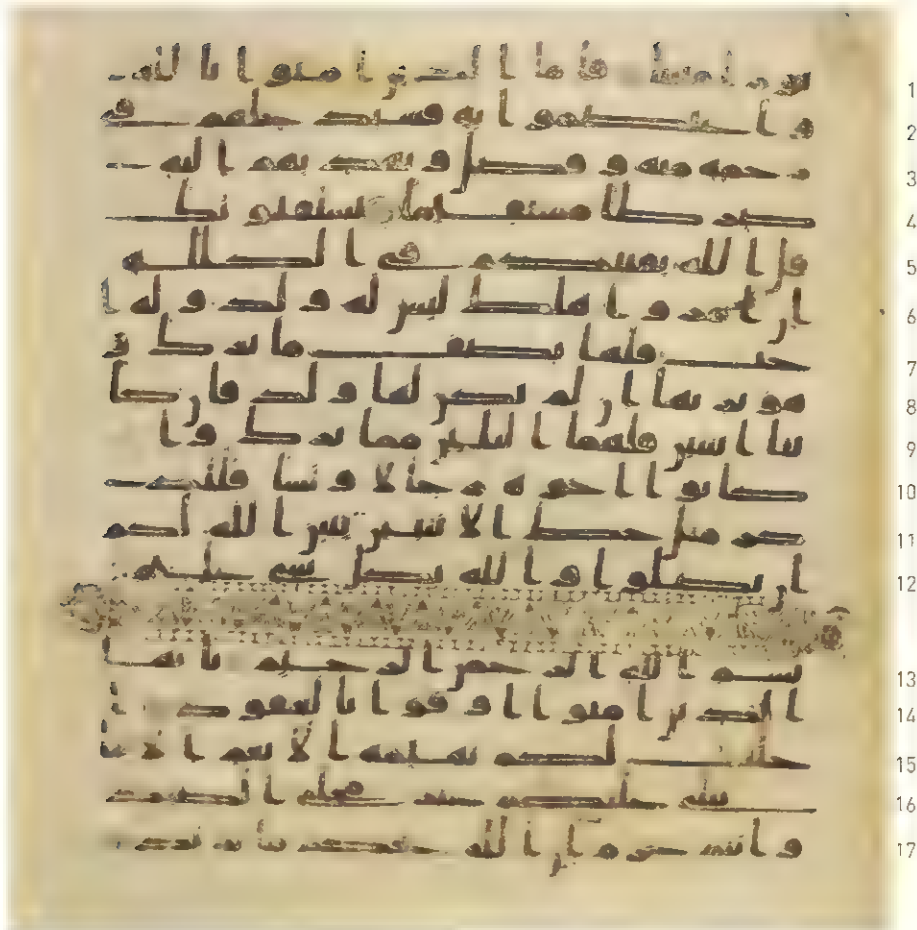 1 نورا مبينا فاما الذين امنوا بالله
2 واعتصموا به فسيدخلهم في
3 رحمة منه وفضل ويهديهم اليه
4 صرطا مستقيما يستفتونك
5 قل الله يفتيكم في الكللة
6 ان امروا هلك ليس له ولد وله ا
7 خت فلها نصف ما ترك و
8 هو يرثها ان لم يكن لها ولد فان كا
9 نتا اثنتين فلهما الثلثين مما ترك وان
10 كانوا اخوة رجالا ونسا فللذ
11 كر مثل حظ الانثيين يبين الله لكم
12 ان تضلوا والله بكل شي عليم
13 بسم الله الرحمن الرحيم يايها
14 الذين امنوا اوفوا بالعقود ا
15 حلت لكم بهيمة الانعم الا ما
16 يتلى عليكم غير محلي الصيد
17 وانتم حرم ان الله يحكم ما يريد